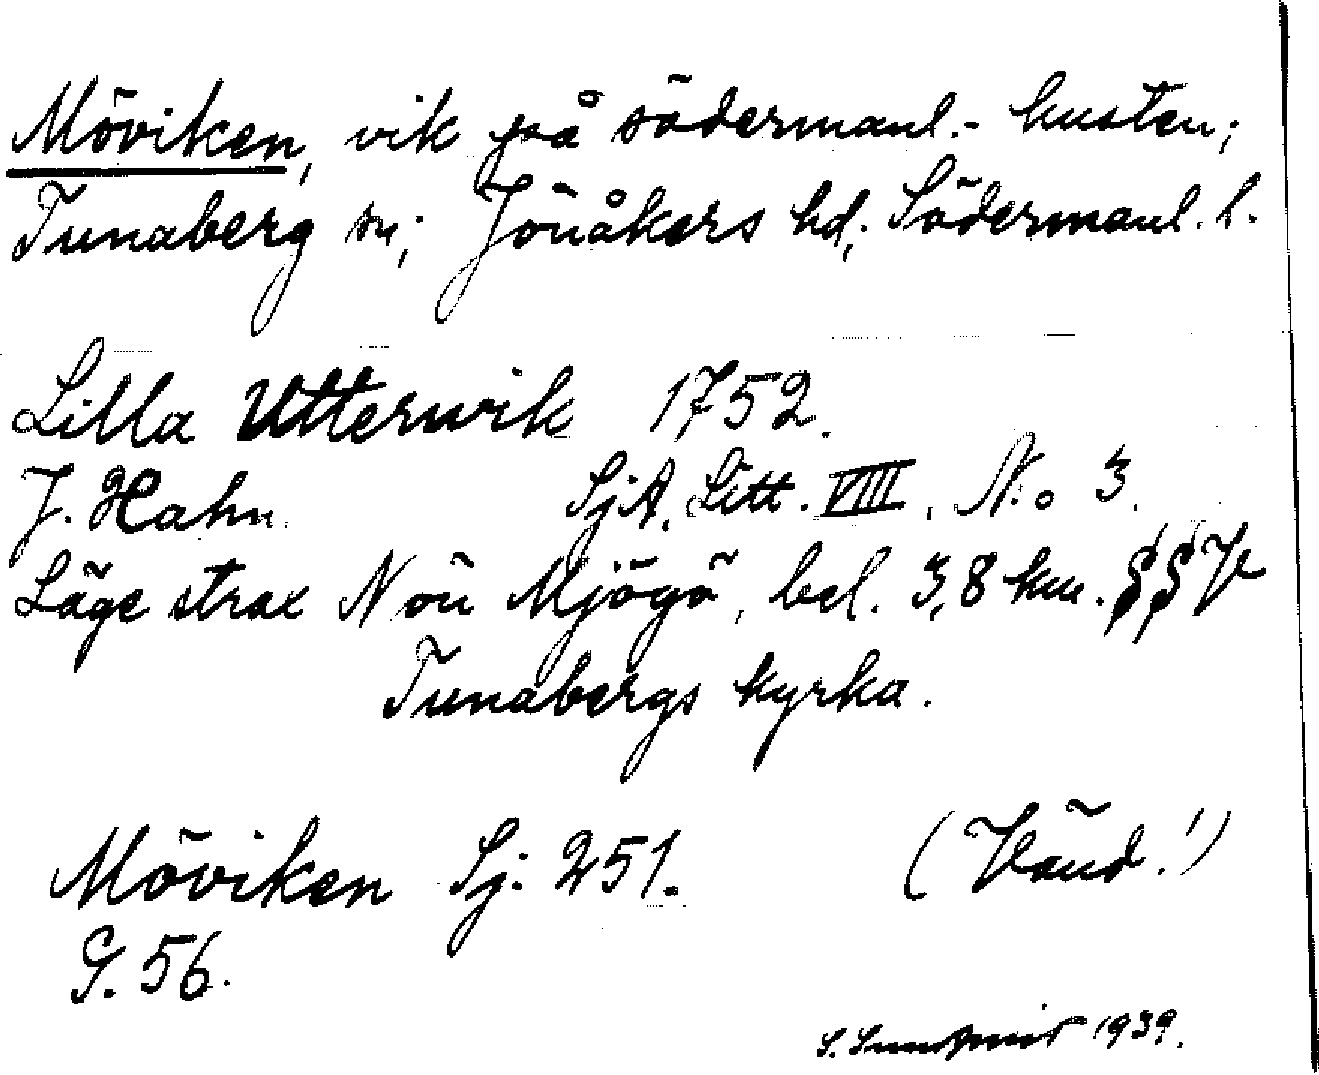 Möviken, vik på södermanl.- kusten;
Tunaberg sn; Jönåkers hd; Södermanl. l.
Lilla Utterwik 1752.
J. Hahn. SjA. Litt. VIII. N:o 3.
Läge strax N ön Mjögö, bel. 3,8 km. §§V
Tunabergs kyrka.
Möviken Sj. 251. (Vänd!)
G. 56.
S. Sundqvist 1939.